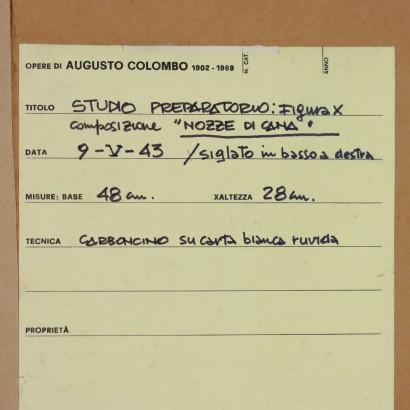 OPERE DI AUGUSTO COLOMBO 1902-1969
N. CAT.
ANNO
TITOLO STUDIO PREPARATORIO: Figura X
composizione "NOZZE DI CANA"
DATA 9-V-43 /siglato in basso a destra
MISURE: BASE 48 cm. XALTEZZA 28 cm.
TECNICA CARBONCINO su carta bianca ruvida
PROPRIETÀ